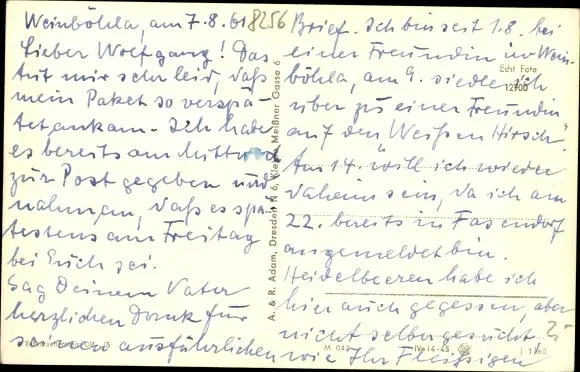 Weinböhla, am 7.8.61
Lieber Wolfgang! Das
tut mir sehr leid, daß
mein Paket so verspä-
tet ankam. Ich habe
es bereits am Mittwoch
zur Post gegeben und
nahm an, daß es spä-
testens am Freitag
bei Euch sei.
Sag Deinem Vater
herzlichen Dank für
seinen ausführlichen
8256
Brief. Ich bin seit 1.8. bei
einer Freundin in Wein-
böhla, am 9. siedle ich
über zu einer Freundin
auf den "Weißen Hirsch".
Am 14. will ich wieder
daheim sein, da ich am
22. bereits in
angemeldet bin.
Heidelbeeren habe ich
hier auch gegessen, aber
nicht selber gesucht
wie Ihr Fleißigen
A. & R. Adam, Dresden N 6, Kleine Meißner Gasse 6
Echt Foto
12700
2,-